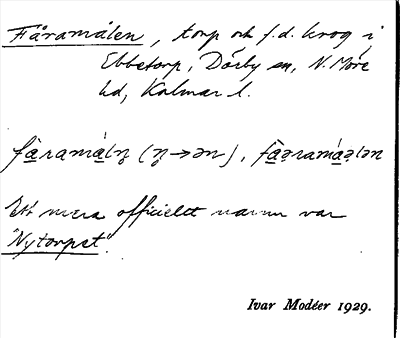 Fåramålen, torp och f.d. krog i
Ebbetorp, Dörby sn, N. Möre
hd, Kalmar l.
få̀ramǻln̥ (n̥→ən), få̀əramǻələn
Ett mera officiellt namn var
"Nytorpet".
Ivar Modéer 1929.